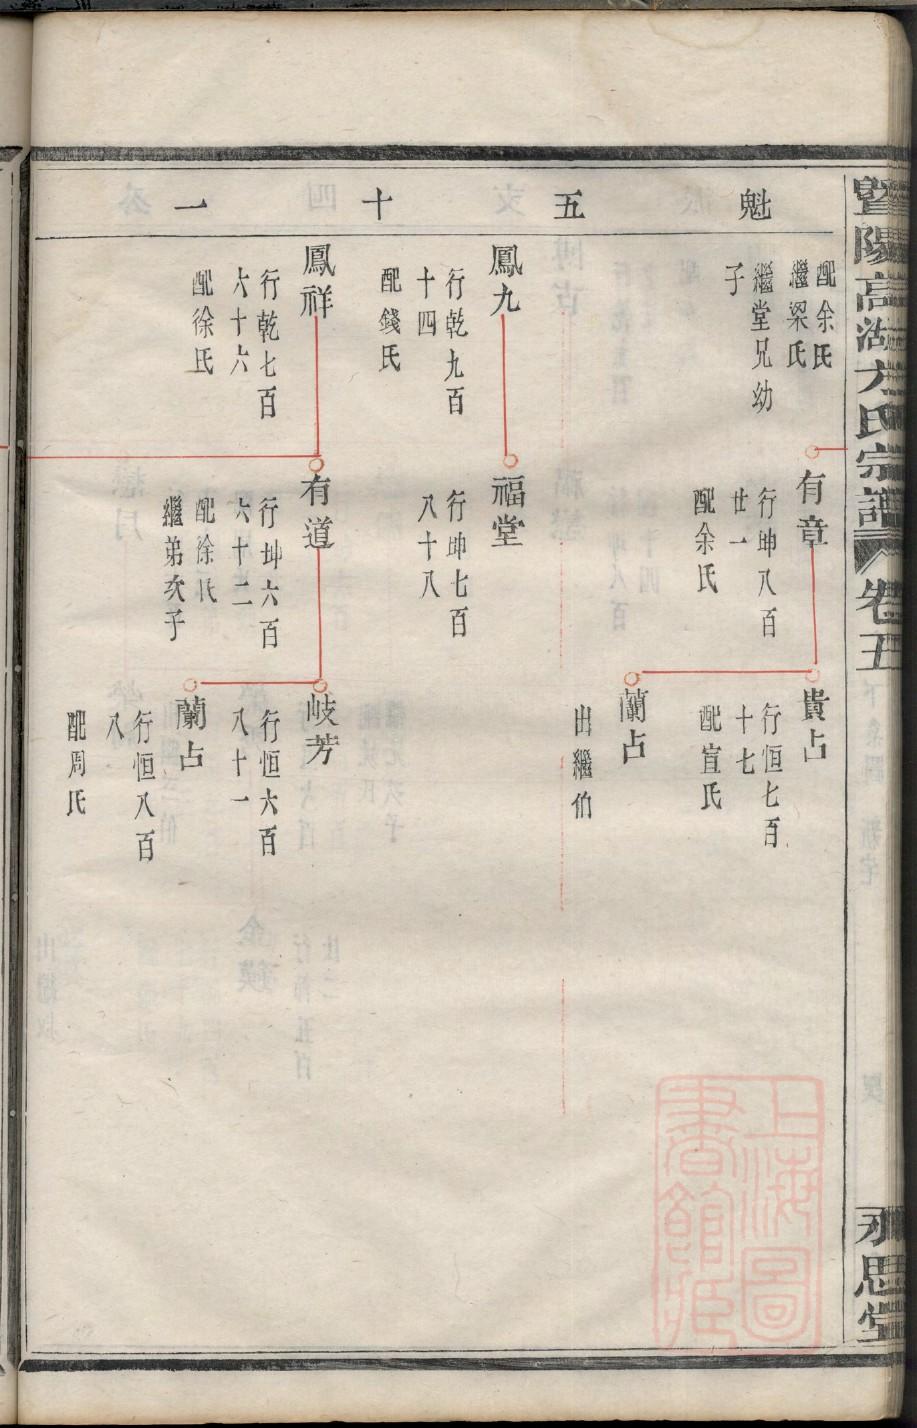 暨陽高湖方氏宗譜 卷五
永思堂
魁五十四一
配余氏
繼梁氏
繼堂兄幼
子
鳳九
行乾九百
十四
配錢氏
鳳祥
行乾七百
六十六
配徐氏
有章
行坤八百
廿一
配余氏
福堂
行坤七百
八十八
有道
行坤六百
六十二
配徐氏
繼弟次子
貴占
行恒七百
十七
配宣氏
蘭占
出繼伯
岐芳
行恒六百
八十一
蘭占
行恒八百
八
配周氏
上海圖
書館藏